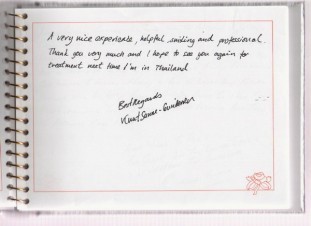 A very nice experience, helpful, smiling and professional.
Thank you very much and I hope to see you again for
treatment next time I'm in Thailand
Best Regards